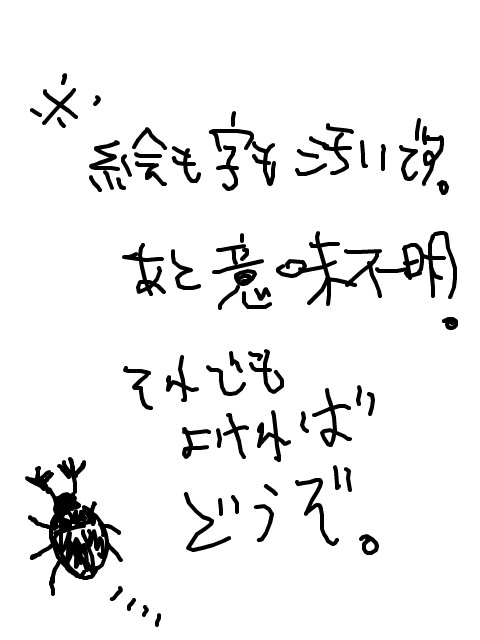 ※
絵も字も汚いです。
あと意味不明。
それでも
よければ
どうぞ。